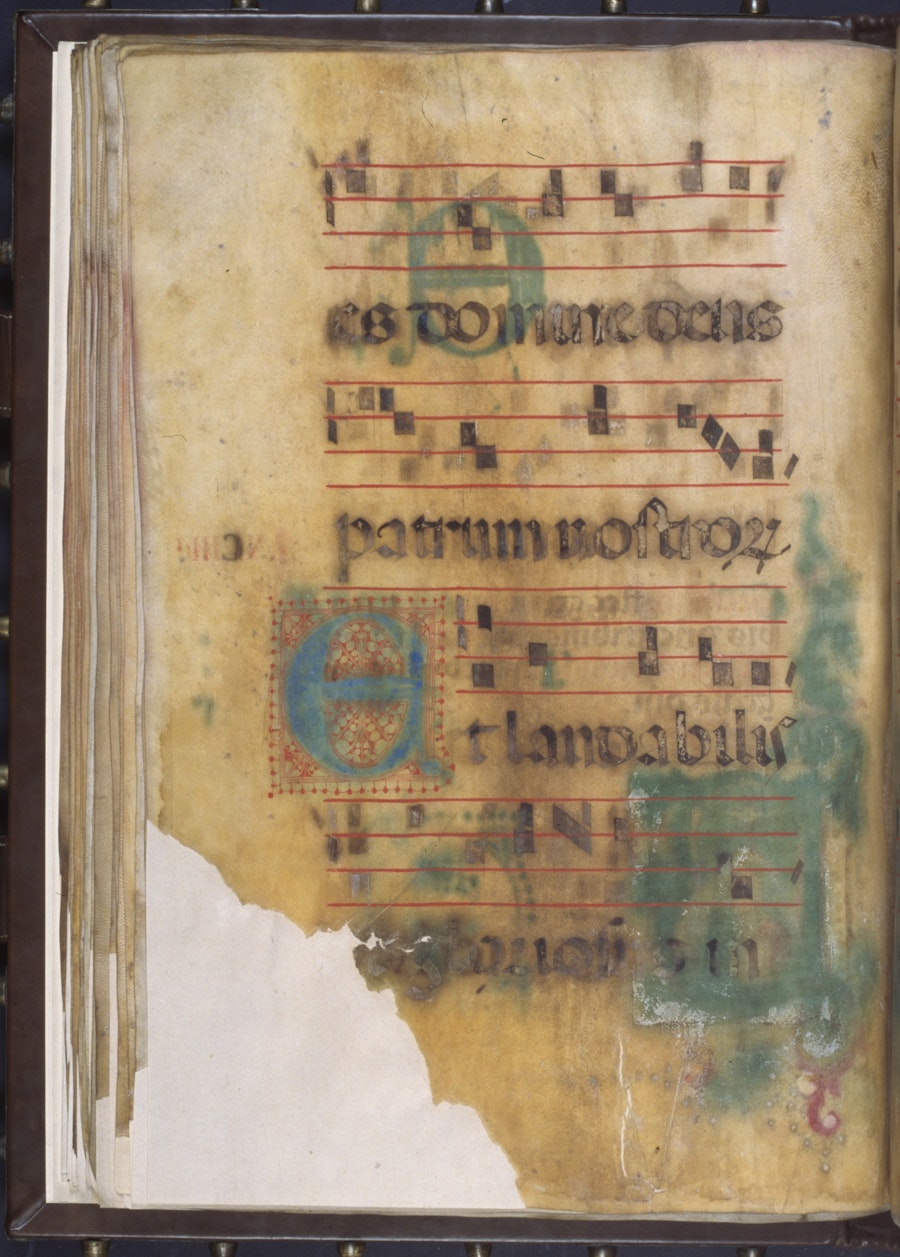 es domine deus
patrum nostroꝝ
Et laudabilis
et gloriosus in